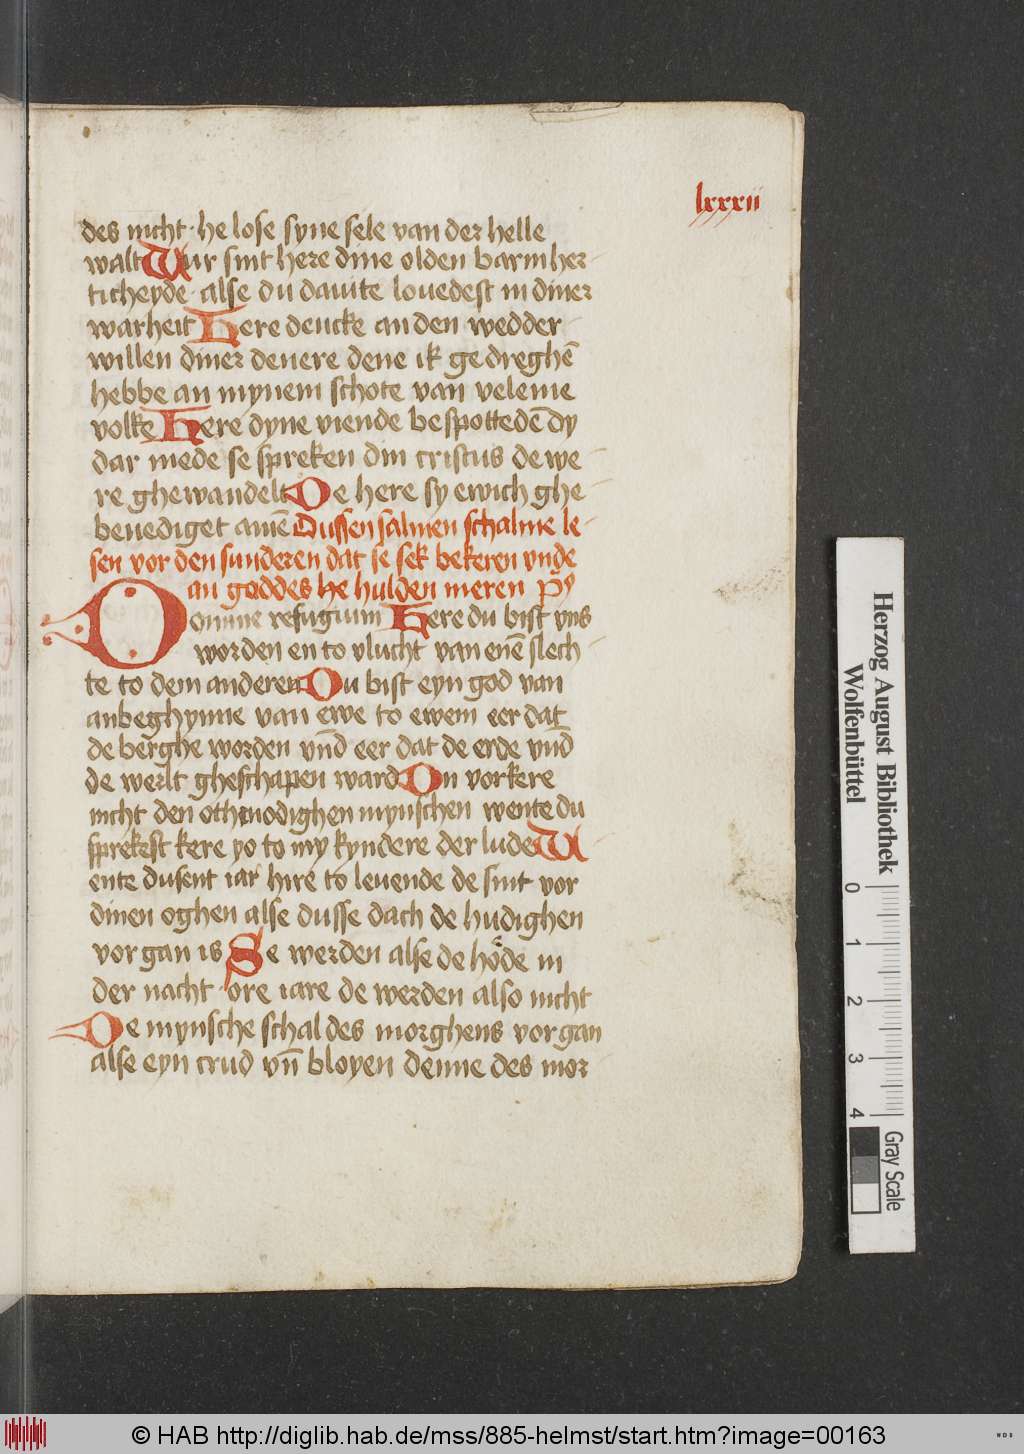 lxxxii
des nicht · he lose syne sele van der helle
walt Wur sint here dine olden barmher-
ticheyde · alse du dauite louedest in diner
warheit Here dencke an den wedder-
willen diner denere dene ik gedreghē
hebbe an mynem schote van veleme
volke Here dyne viende bespottedē dy
dar mede se spreken din cristus de we-
re ghewandelt De here sy ewich ghe-
benediget amē Dussen salmen schalme le-
sen vor den sunderen dat se sek bekeren vnde
an goddes he hulden meren Ps
Domine refugium Here du bist vns
worden en to vlucht van enē slech-
te to dem anderen Du bist eyn god van
anbeghynne van ewe to ewem eer dat
de berghe worden vn̄d eer dat de erde vn̄d
de werlt gheschapen ward On vorkere
nicht den othmodighen mynschen wente du
sprekest kere yo to my kyndere der lude W
ente dusent iar hire to leuende de sint vor
dinen oghen alse dusse dach de hudighen
vorgan is Se werden alse de hode in
der nacht · ore iare de werden also nicht
De mynsche schal des morghens vorgan
alse eyn crud vn̄ bloyen denne des mor-
Herzog August Bibliothek
Wolfenbüttel
0 1 2 3 4
Gray Scale
© HAB http://diglib.hab.de/mss/885-helmst/start.htm?image=00163
WDB